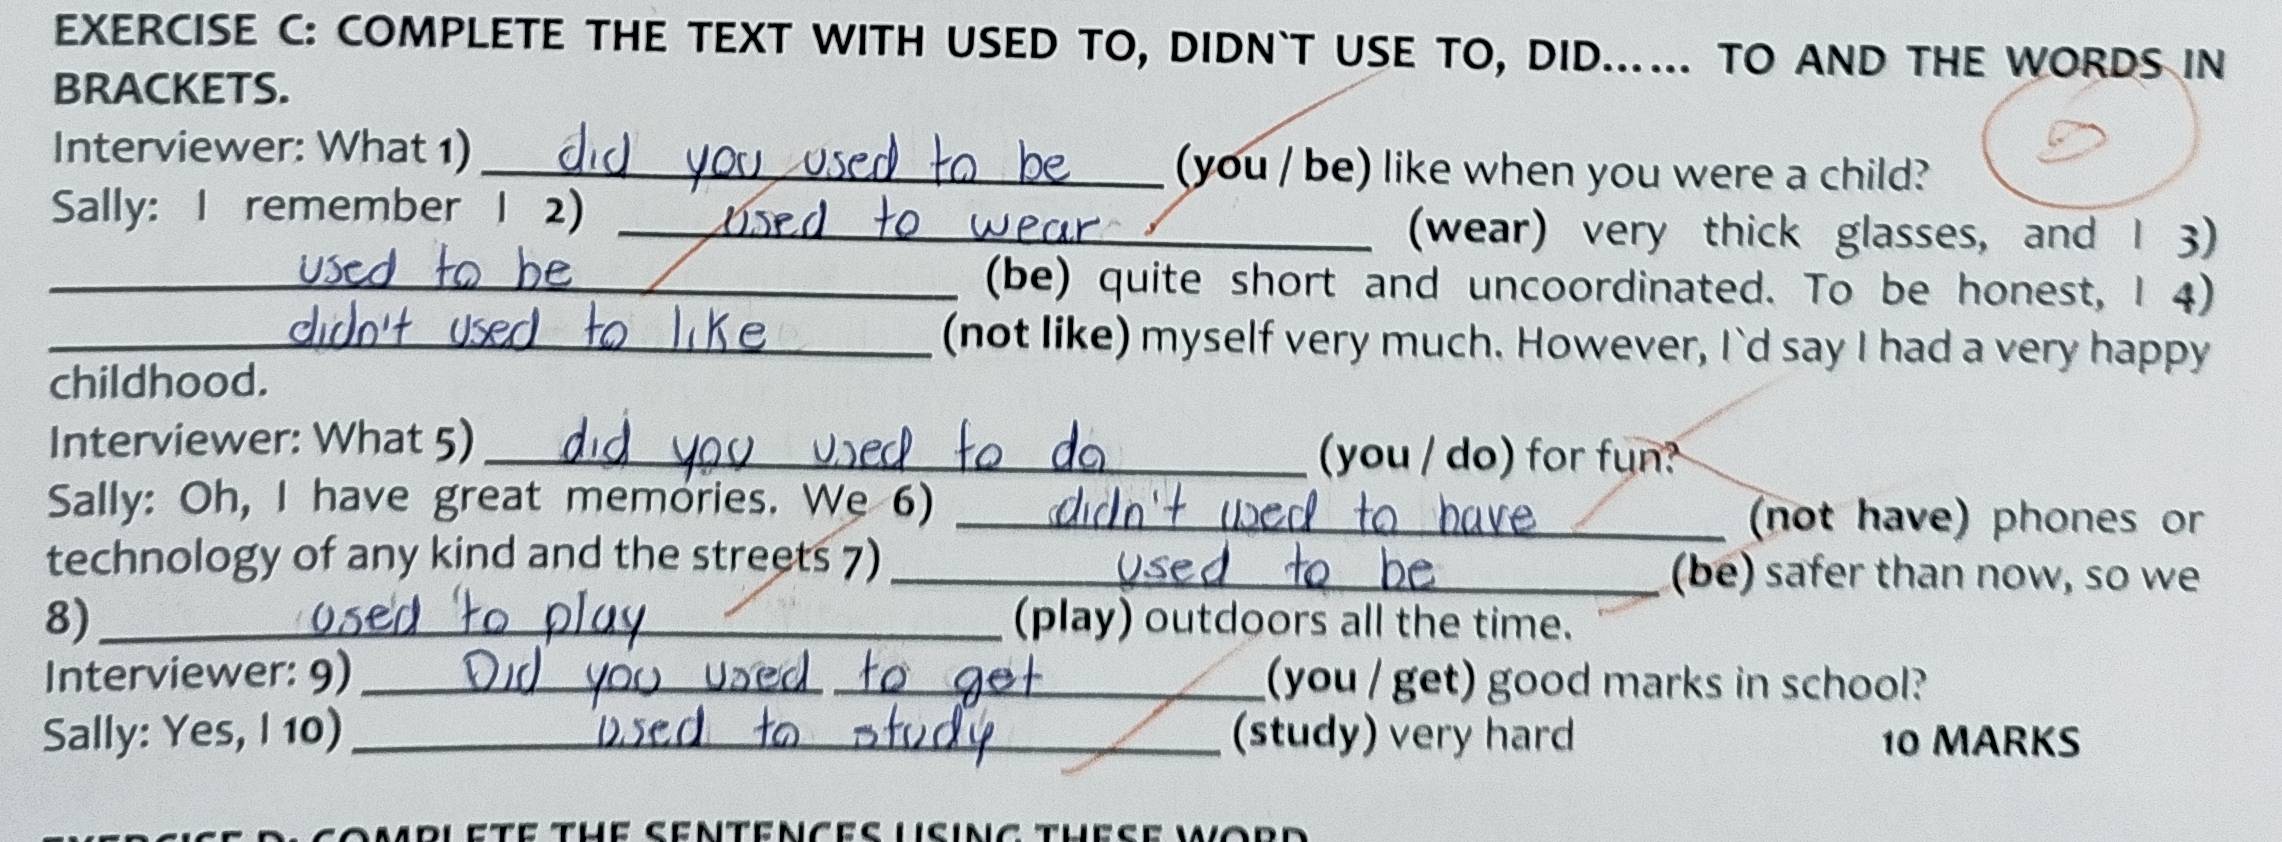 EXERCISE C: COMPLETE THE TEXT WITH USED TO, DIDN`T USE TO, DID...... TO AND THE WORDS IN
BRACKETS.
Interviewer: What 1) did you used to be (you / be) like when you were a child?
Sally: I remember I 2) used to wear (wear) very thick glasses, and I 3)
used to be (be) quite short and uncoordinated. To be honest, I 4)
didn't used to like (not like) myself very much. However, I`d say I had a very happy
childhood.
Interviewer: What 5) did you used to do (you / do) for fun?
Sally: Oh, I have great memories. We 6) didn't used to have (not have) phones or
technology of any kind and the streets 7) used to be (be) safer than now, so we
8) used to play (play) outdoors all the time.
Interviewer: 9) Did you used to get (you / get) good marks in school?
Sally: Yes, I 10) used to study (study) very hard 10 MARKS
EXERCISE D: COMPLETE THE SENTENCES USING THESE WORD